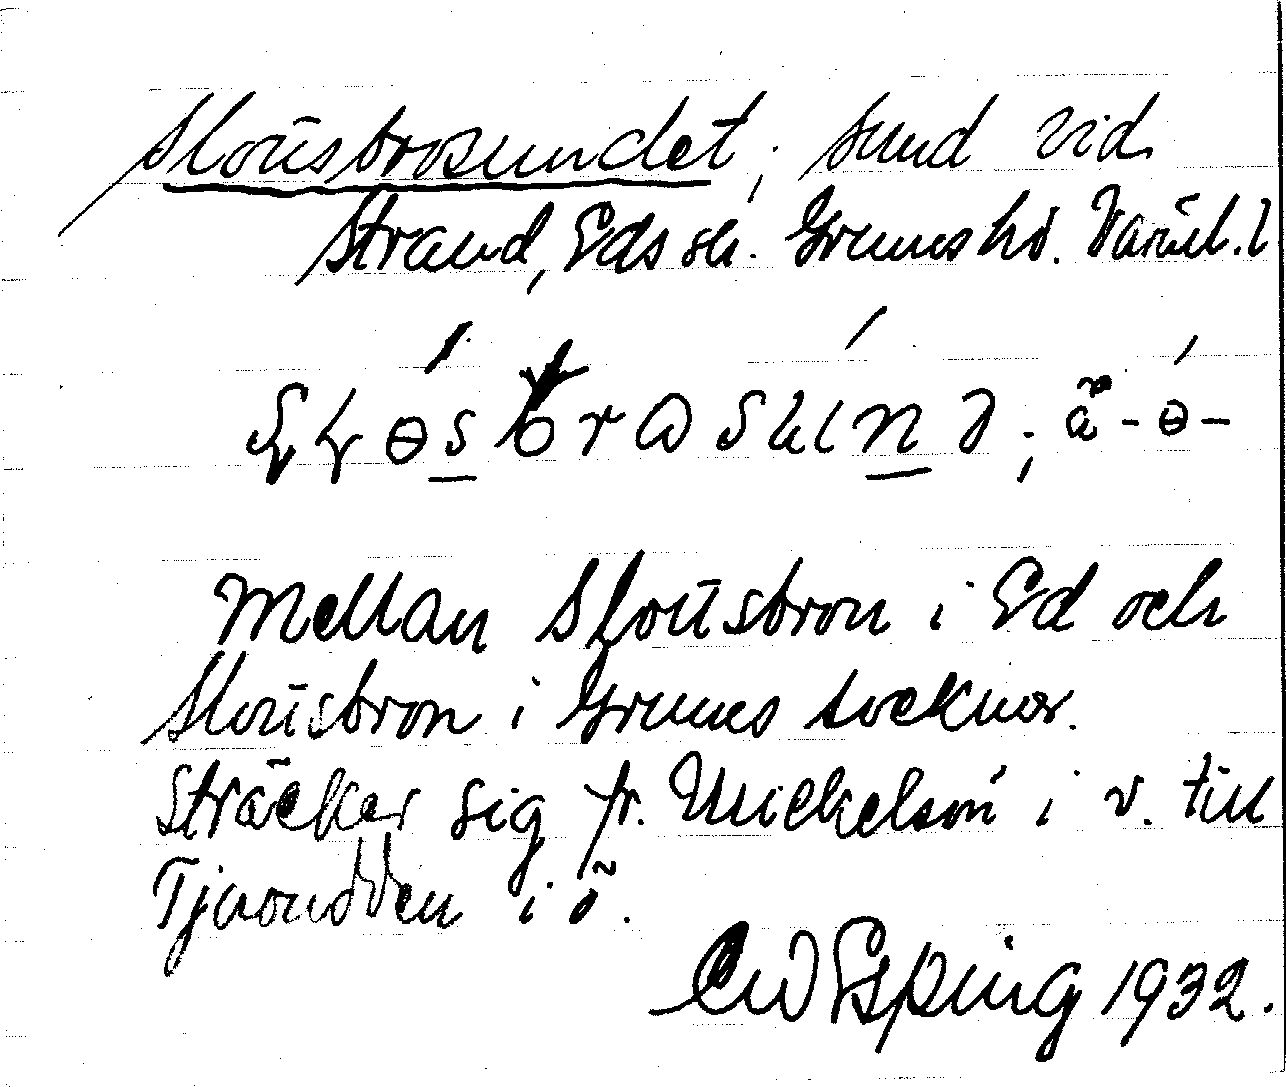 Slottsbrosundet; sund vid
Strand, Eds sn. Grums hd. Värml. l
Mellan Slottsbron i Ed och
Slottsbron i Grums socknar.
Sträcker sig fr. Mickelsön i v. till
Tjuvudden i ö.
Esping 1932.